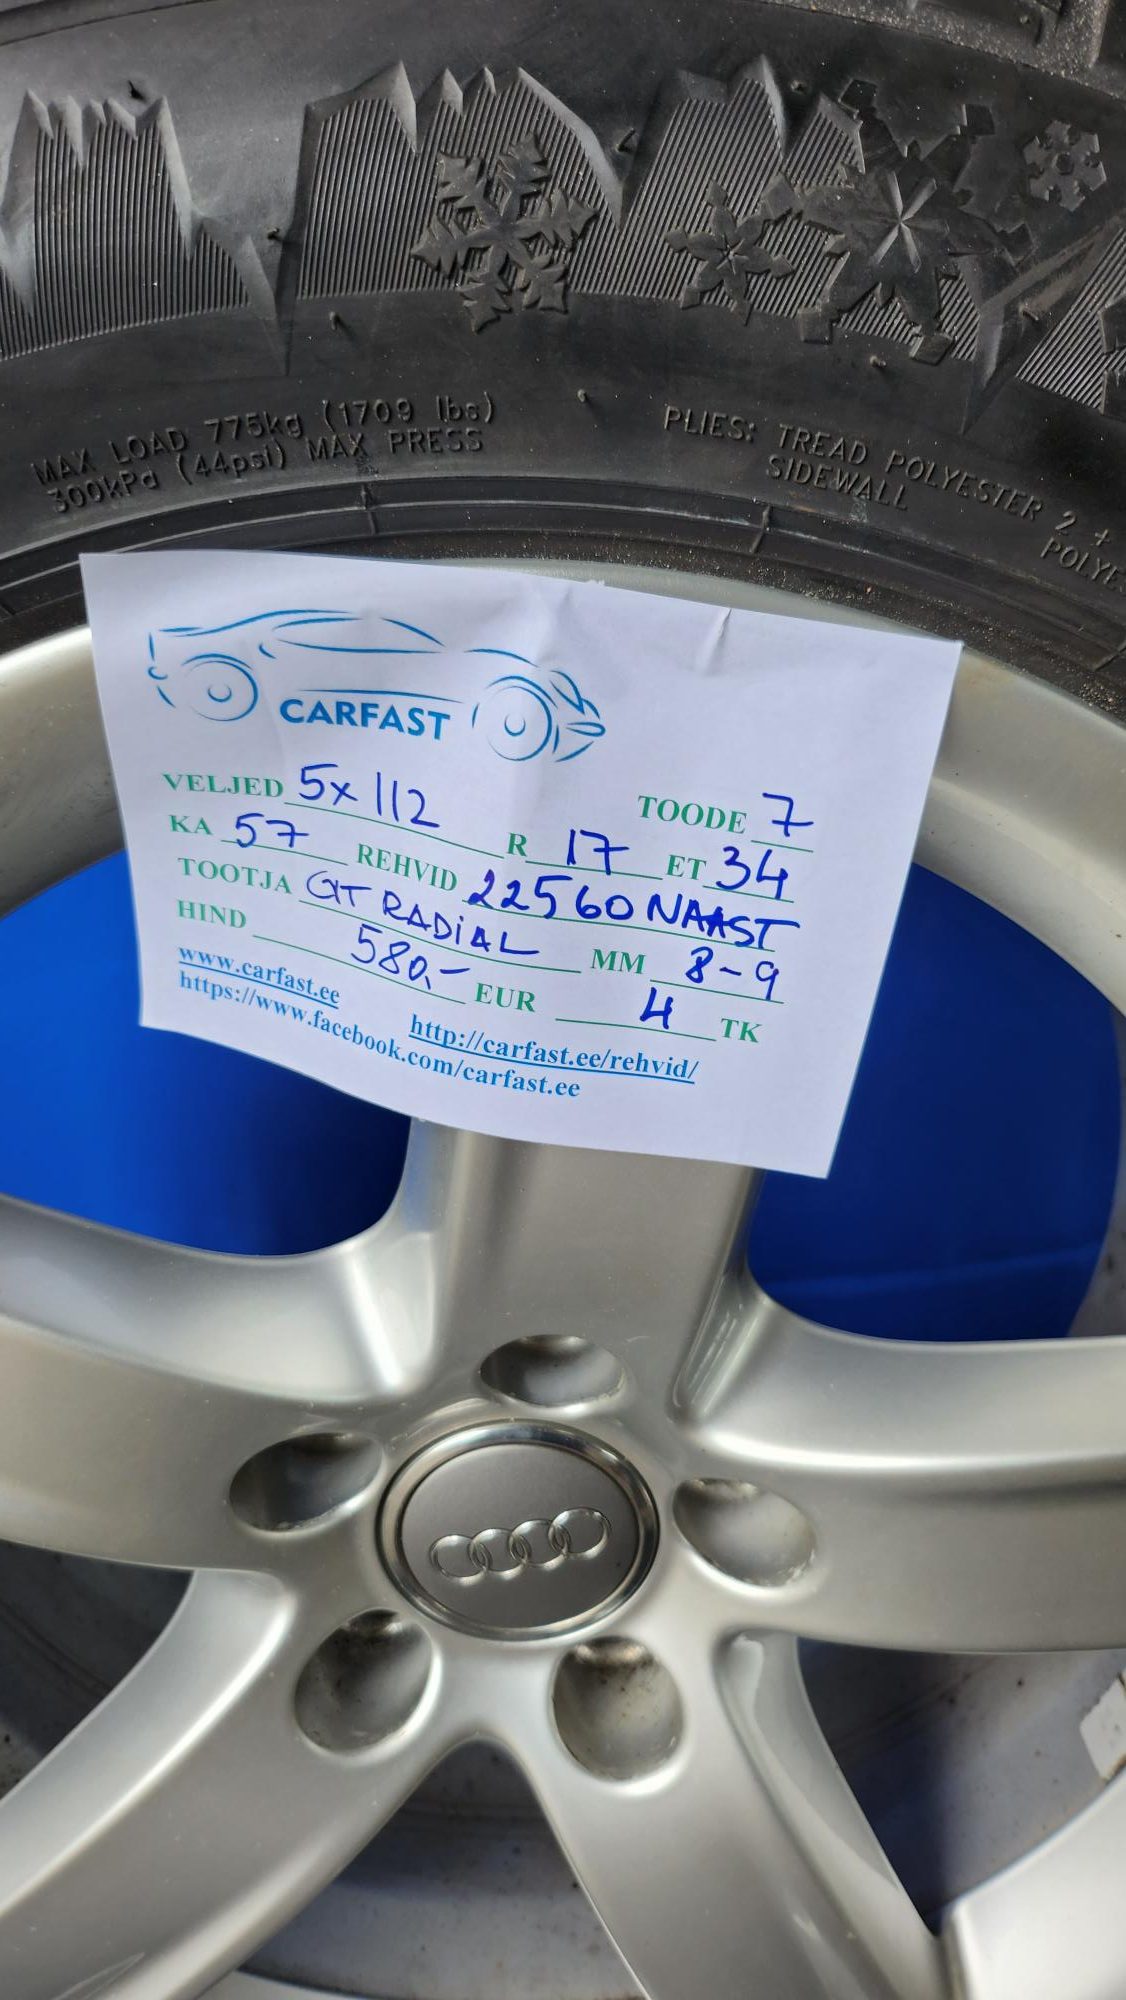 MAX LOAD 775kg (1709 lbs)
300kPa (44psi) MAX PRESS
PLIES: TREAD POLYESTER 2 +
SIDEWALL POLYE
CARFAST
TOODE 7
VELJED 5x112 R 17 ET 34
KA 57 REHVID 22560 NAAST
TOOTJA GT RADIAL MM 8-9
HIND 580,- EUR 4 TK
www.carfast.ee http://carfast.ee/rehvid/
https://www.facebook.com/carfast.ee